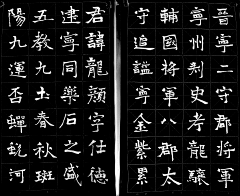 晉寧二守龍將軍
寧州刺史考龍驤
輔國將軍八郡太
守追謚寧金紫累
君諱龍顏字仕德
建寧同樂石之盛
五教九土春秋斑
陽九運否蟬蛻河